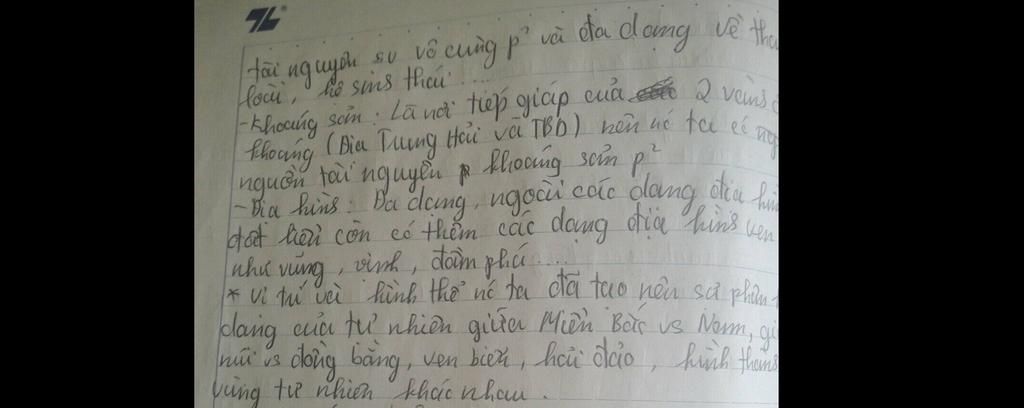 TL
tài nguyên sv vô cùng p² và đa dạng về
loài, hệ sinh thái ...
- Khoáng sản: Là nơi tiếp giáp của 2 vành
khoáng (Địa Trung Hải và TBD) nên nc ta có
nguồn tài nguyên khoáng sản p²
- Địa hình: Đa dạng, ngoài các dạng địa
đất liền còn có thêm các dạng địa hình ven
như vũng, vịnh, đầm phá ...
* Vị trí và hình thể nc ta đã tạo nên sự phân
dạng của tự nhiên giữa Miền Bắc vs Nam,
núi vs đồng bằng, ven biển, hải đảo, hình
vùng tự nhiên khác nhau.